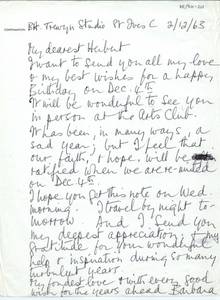 B.H. Trewyn Studio St Ives C 2/12/63
My dearest Herbert
I want to send you all my love
& my best wishes for a happy
Birthday on Dec. 4th
It will be wonderful to see you
in person at the Arts Club.
It has been, in many ways, a
sad year; but I feel that
our faith, & hope, will be
ratified when we are re-united
on Dec 4th
I hope you get this note on Wed.
morning. I travel by night to-
morrow. And I send you
my deepest appreciation, & my
gratitude for your wonderful
help & inspiration during so many
turbulent years.
My fondest love & with every good
wish for the years ahead Barbara